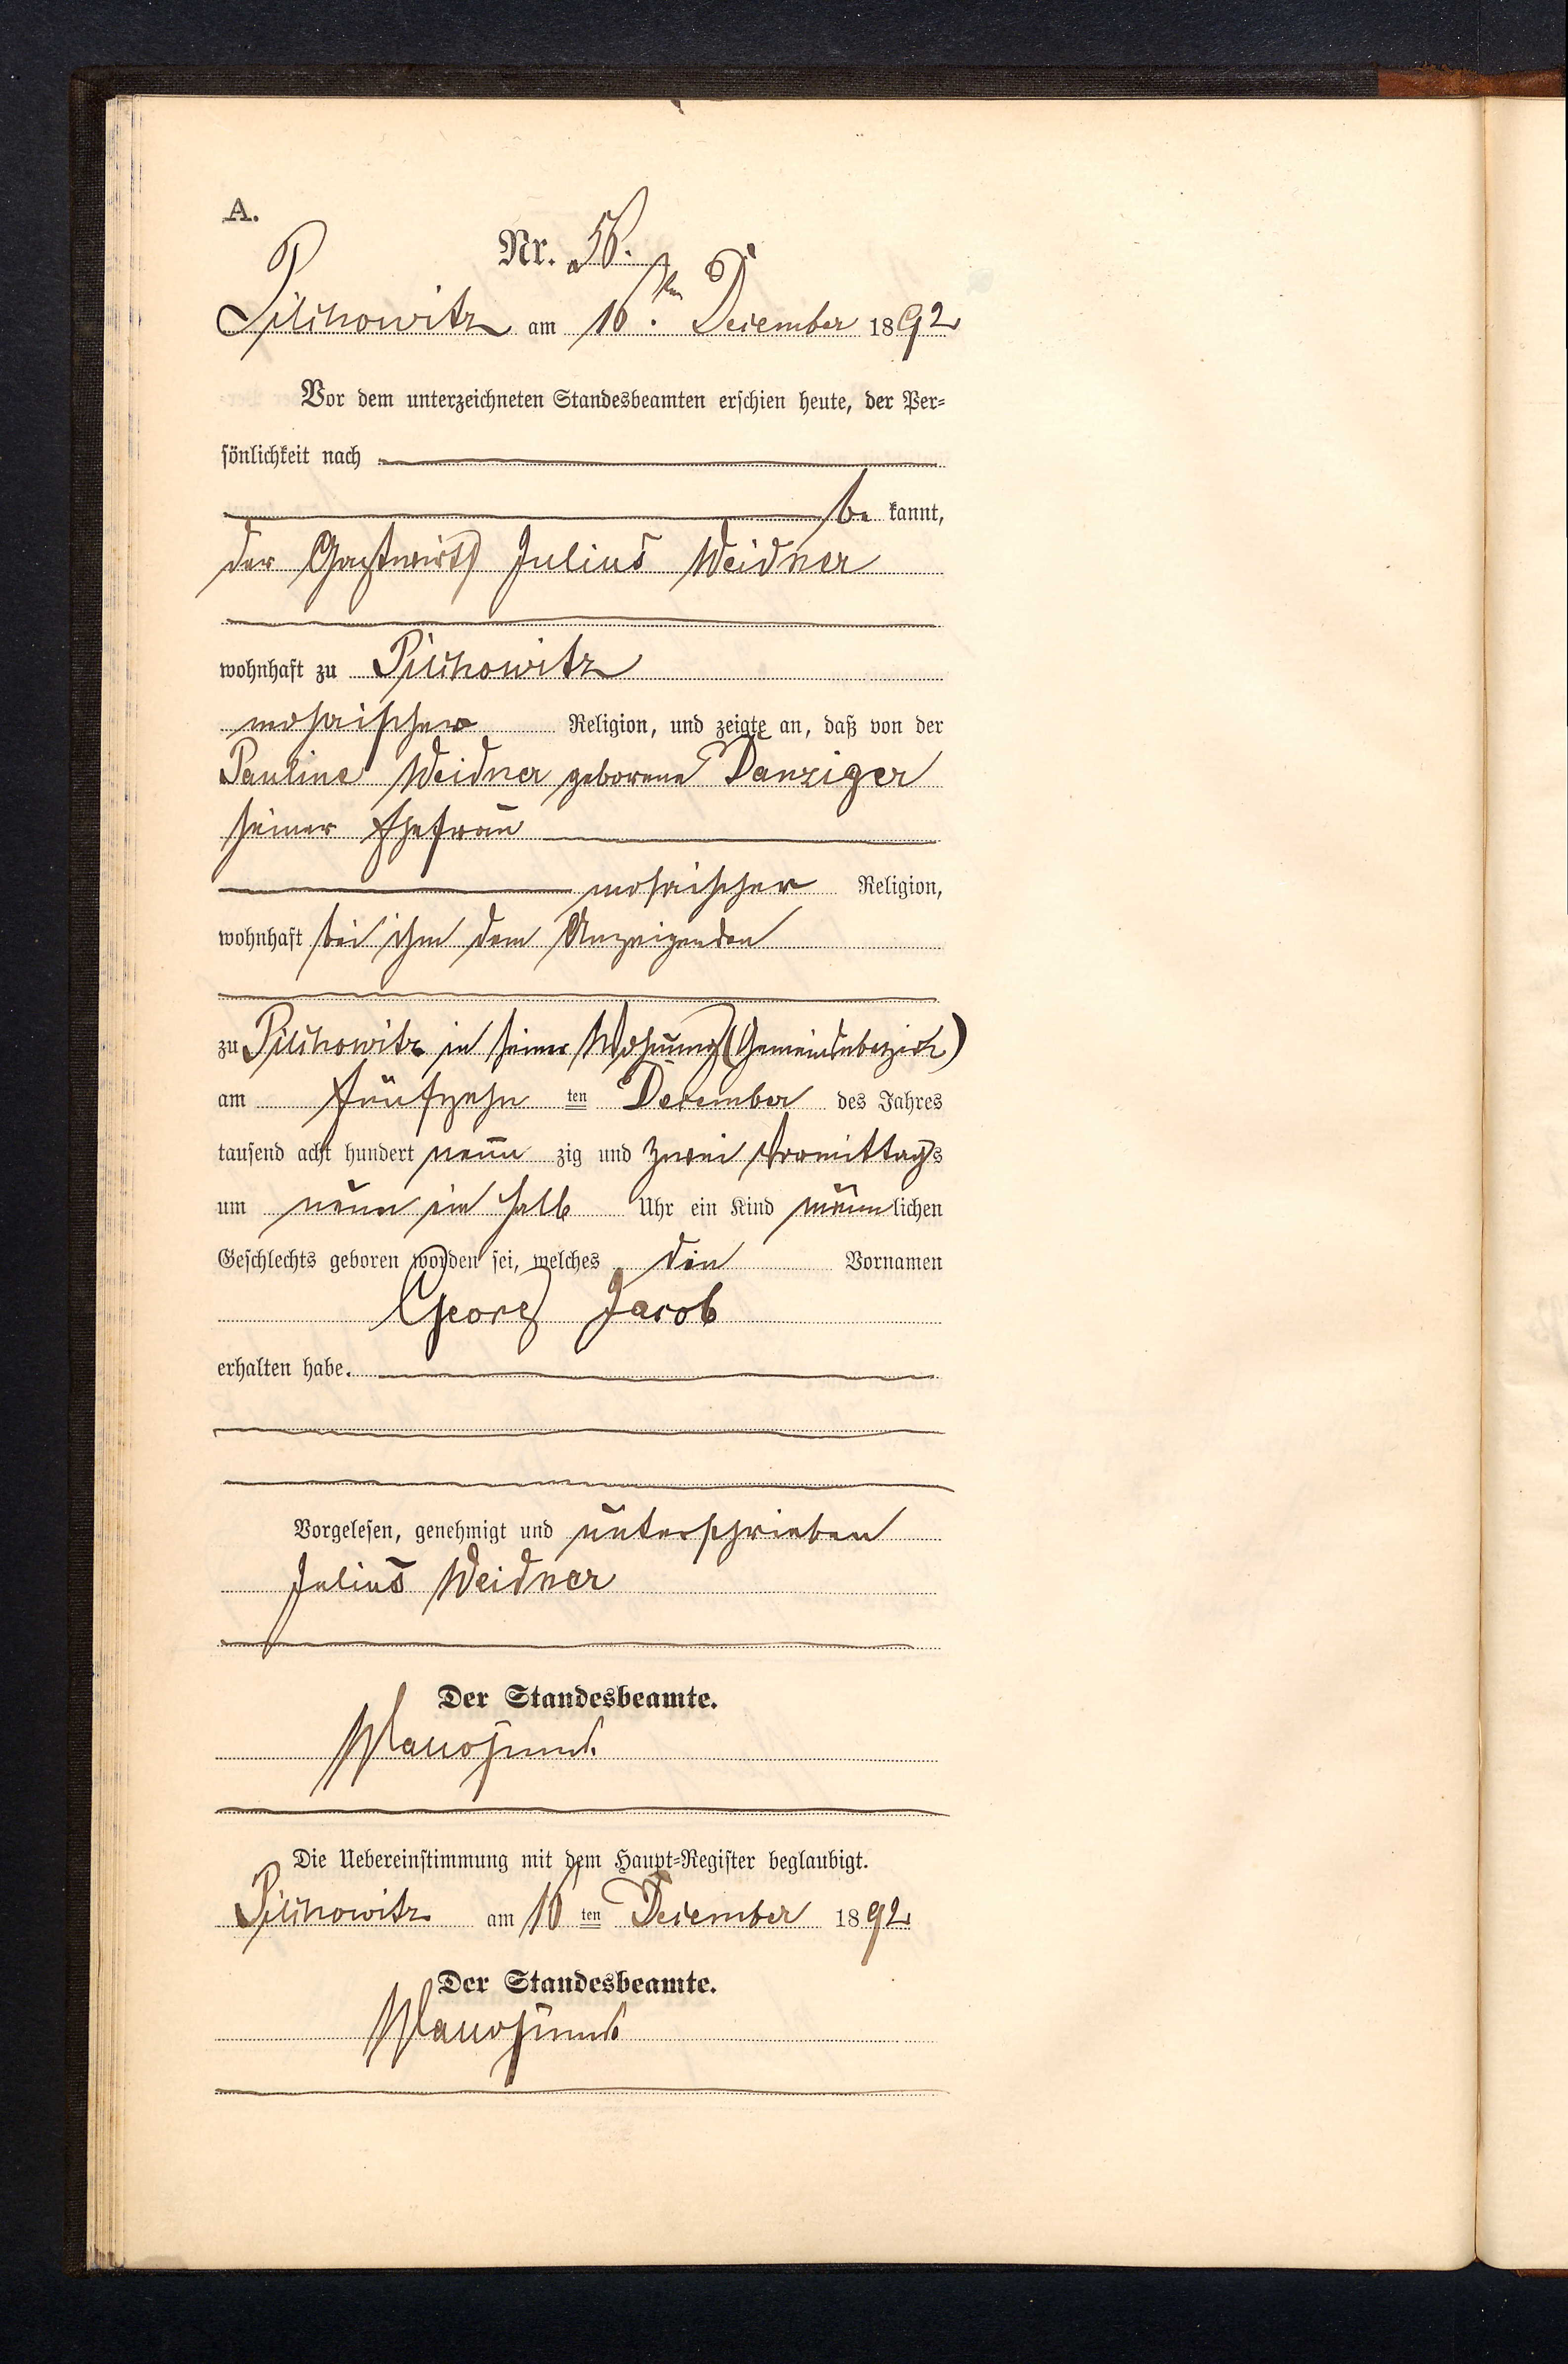 A.
Nr. 56.
Pilchowitz am 16.ten December 1892
Vor dem unterzeichneten Standesbeamten erschien heute, der Per=
sönlichkeit nach
be kannt,
der Gastwirth Julius Weidner
wohnhaft zu Pilchowitz
mosaischer Religion, und zeigte an, daß von der
Pauline Weidner geborene Danziger
seiner Ehefrau
mosaischer Religion,
wohnhaft bei ihm dem Anzeigenden
zu Pilchowitz in seiner Wohnung (Gemeindebezirk)
am fünfzehn ten December des Jahres
tausend acht hundert neun zig und zwei Vormittags
um neun ein halb Uhr ein Kind männlichen
Geschlechts geboren worden sei, welches die Vornamen
Georg Jacob
erhalten habe.
Vorgelesen, genehmigt und unterschrieben
Julius Weidner
Der Standesbeamte.
Die Uebereinstimmung mit dem Haupt=Register beglaubigt.
Pilchowitz am 16 ten December 1892
Der Standesbeamte.